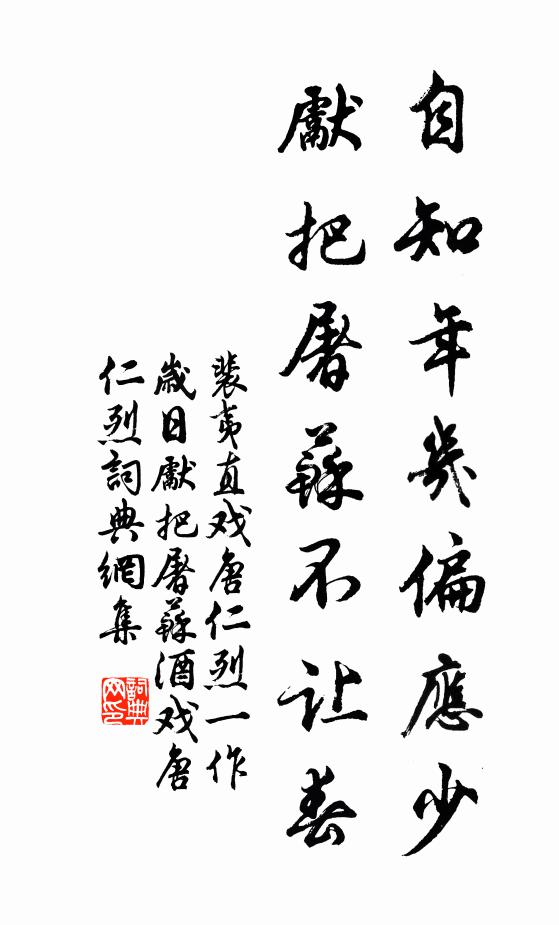 自知年幾偏應少
獻把屠蘇不让春
裴夷直戏唐仁烈一作
歲日獻把屠蘇酒戏唐
仁烈詞典網集
詞典
网印